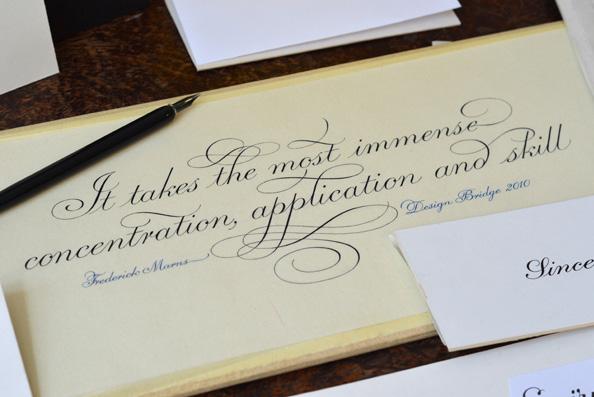 It takes the most immense
concentration, application and skill
Frederick Marns
Design Bridge 2010
Since